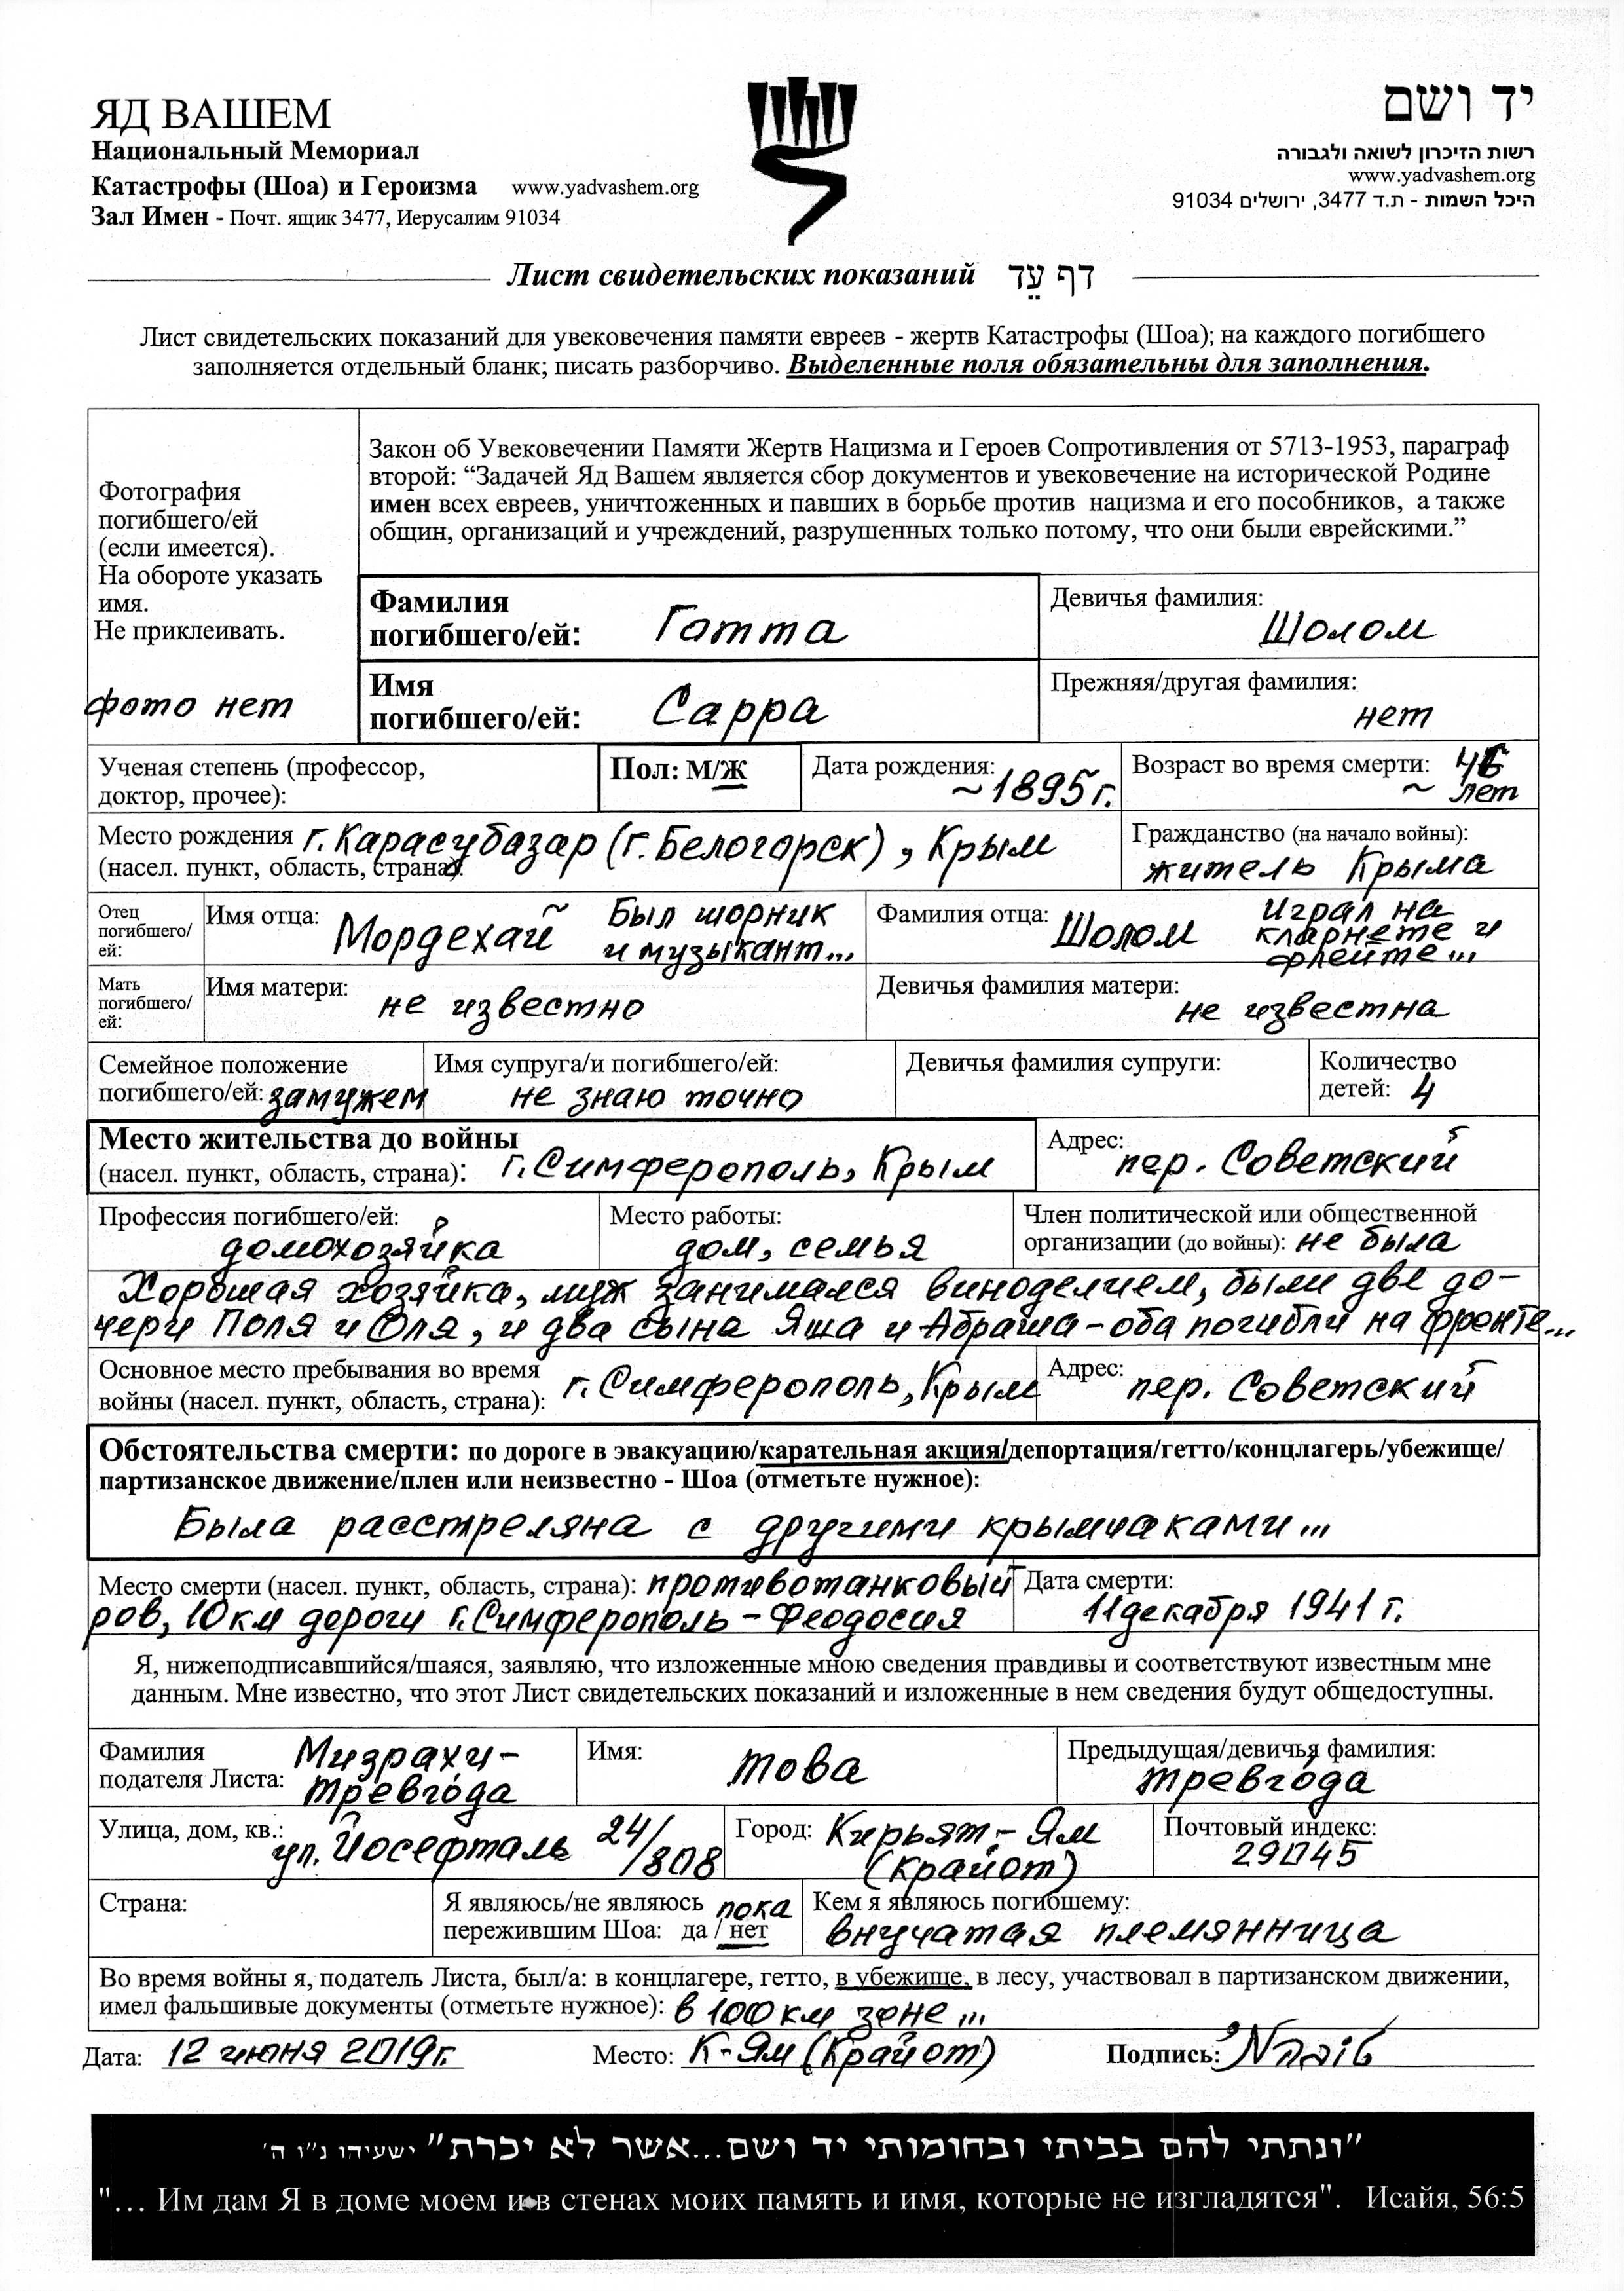 ЯД ВАШЕМ
Национальный Мемориал
Катастрофы (Шоа) и Героизма www.yadvashem.org
Зал Имен - Почт. ящик 3477, Иерусалим 91034
יד ושם
רשות הזיכרון לשואה ולגבורה
www.yadvashem.org
היכל השמות - ת.ד 3477, ירושלים 91034
Лист свидетельских показаний דף עֵד
Лист свидетельских показаний для увековечения памяти евреев - жертв Катастрофы (Шоа); на каждого погибшего
заполняется отдельный бланк; писать разборчиво. Выделенные поля обязательны для заполнения.
Фотография
погибшего/ей
(если имеется).
На обороте указать
имя.
Не приклеивать.
фото нет
Закон об Увековечении Памяти Жертв Нацизма и Героев Сопротивления от 5713-1953, параграф
второй: “Задачей Яд Вашем является сбор документов и увековечение на исторической Родине
имен всех евреев, уничтоженных и павших в борьбе против нацизма и его пособников, а также
общин, организаций и учреждений, разрушенных только потому, что они были еврейскими.”
Фамилия
погибшего/ей: Готта
Девичья фамилия:
Шолом
Имя
погибшего/ей: Сарра
Прежняя/другая фамилия:
нет
Ученая степень (профессор,
доктор, прочее):
Пол: М/Ж
Дата рождения:
~1895г.
Возраст во время смерти: 46
~ лет
Место рождения г. Карасубазар (г. Белогорск), Крым
(насел. пункт, область, страна):
Гражданство (на начало войны):
житель Крыма
Отец
погибшего/
ей:
Имя отца: Мордехай Был шорник
и музыкант...
Фамилия отца: Шолом Играл на
кларнете и
флейте...
Мать
погибшего/
ей:
Имя матери: не известно
Девичья фамилия матери:
не известна
Семейное положение
погибшего/ей: замужем
Имя супруга/и погибшего/ей:
не знаю точно
Девичья фамилия супруги:
Количество
детей: 4
Место жительства до войны
(насел. пункт, область, страна): г. Симферополь, Крым
Адрес:
пер. Советский
Профессия погибшего/ей:
домохозяйка
Место работы:
дом, семья
Член политической или общественной
организации (до войны): не была
Хорошая хозяйка, муж занимался виноделием, были две до-
чери Поля и Оля, и два сына Яша и Абраша - оба погибли на фронте...
Основное место пребывания во время
войны (насел. пункт, область, страна): г. Симферополь, Крым
Адрес:
пер. Советский
Обстоятельства смерти: по дороге в эвакуацию/карательная акция/депортация/гетто/концлагерь/убежище/
партизанское движение/плен или неизвестно - Шоа (отметьте нужное):
Была расстреляна с другими крымчаками...
Место смерти (насел. пункт, область, страна): противотанковый
ров, 10 км дороги г. Симферополь - Феодосия
Дата смерти:
11 декабря 1941 г.
Я, нижеподписавшийся/шаяся, заявляю, что изложенные мною сведения правдивы и соответствуют известным мне
данным. Мне известно, что этот Лист свидетельских показаний и изложенные в нем сведения будут общедоступны.
Фамилия
подателя Листа: Мизрахи-
Тревгода
Имя:
Това
Предыдущая/девичья фамилия:
Тревгода
Улица, дом, кв.:
ул. Йосефталь 24/808
Город: Кирьят-Ям
(Крайот)
Почтовый индекс:
29045
Страна:
Я являюсь/не являюсь пока
пережившим Шоа: да / нет
Кем я являюсь погибшему:
внучатая племянница
Во время войны я, податель Листа, был/а: в концлагере, гетто, в убежище, в лесу, участвовал в партизанском движении,
имел фальшивые документы (отметьте нужное): в 100 км зоне...
Дата: 12 июня 2019г.
Место: К-Ям (Крайот)
Подпись:
"ונתתי להם בביתי ובחומותי יד ושם...אשר לא יכרת" ישעיהו נ"ו ה'
"... Им дам Я в доме моем и в стенах моих память и имя, которые не изгладятся". Исайя, 56:5